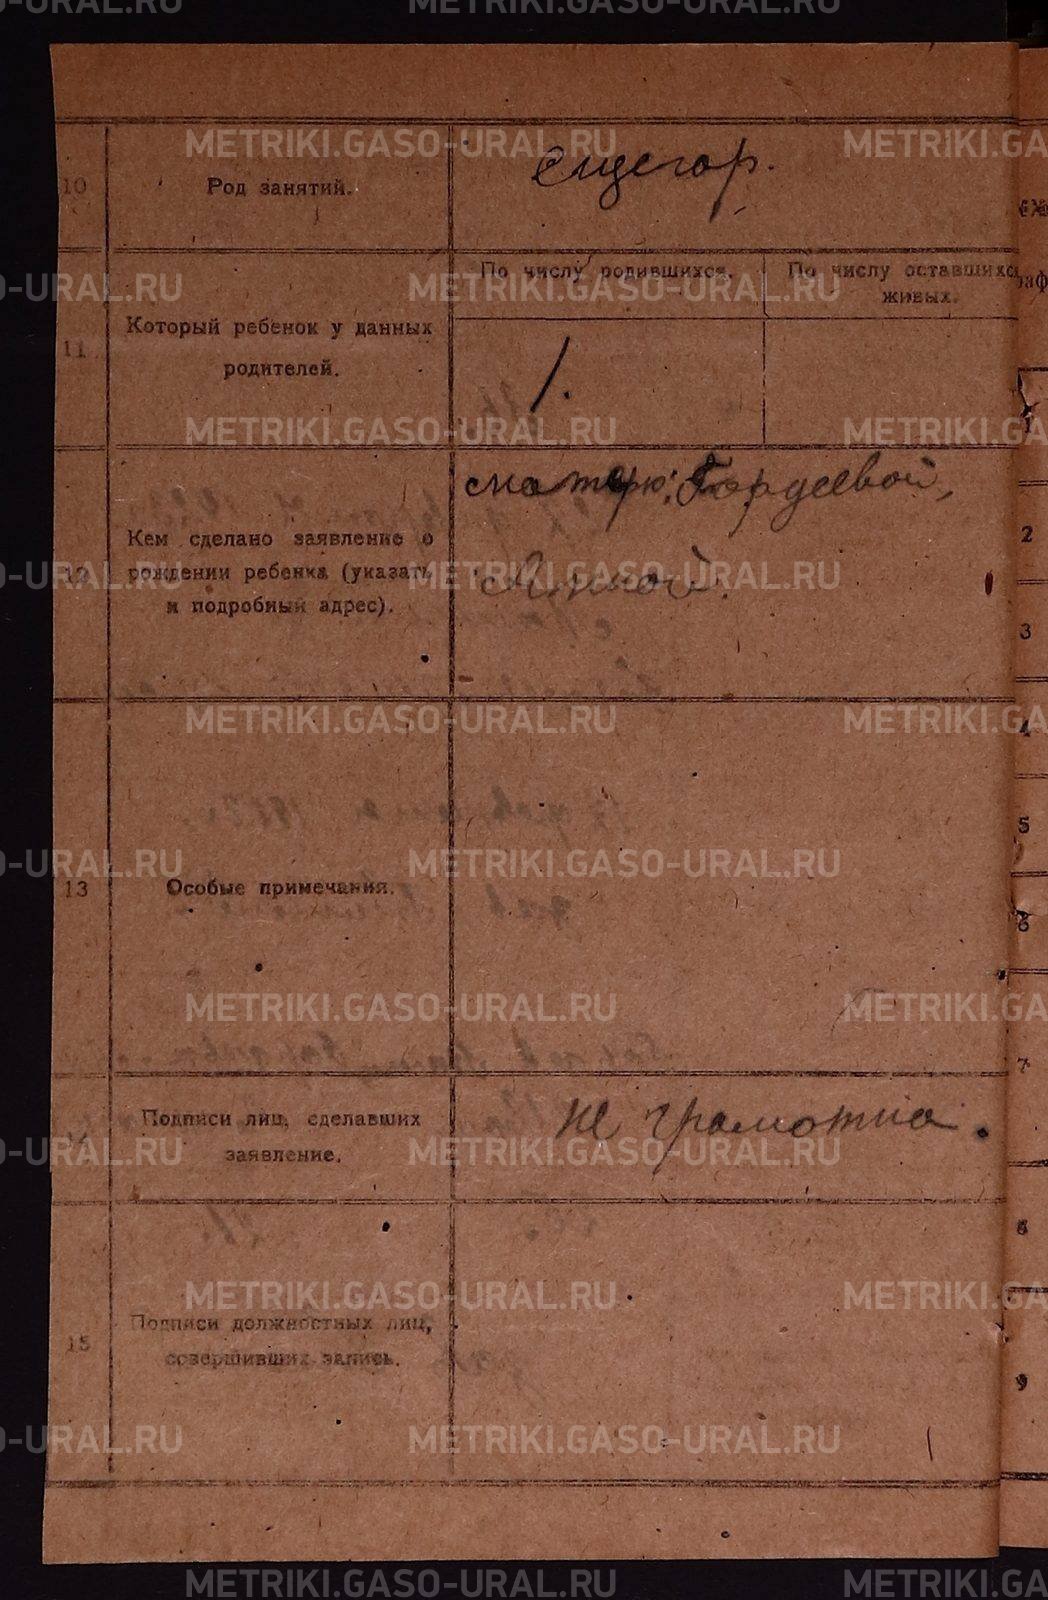 METRIKI.GASO-URAL.RU
10 Род занятий.
11 Который ребенок у данных
родителей.
По числу родившихся.
По числу оставшихся
живых.
1.
12 Кем сделано заявление о
рождении ребенка (указать
и подробный адрес).
матерью: Гордеевой,
Анной.
13 Особые примечания.
14 Подписи лиц, сделавших
заявление.
не грамотна.
15 Подписи должностных лиц,
совершивших запись.
1
2
3
4
5
6
7
8
9